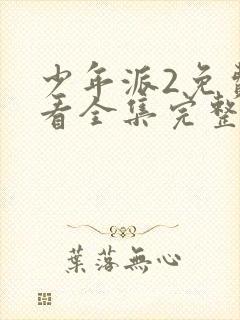 少年派2免费
看全集完整
葉落無心